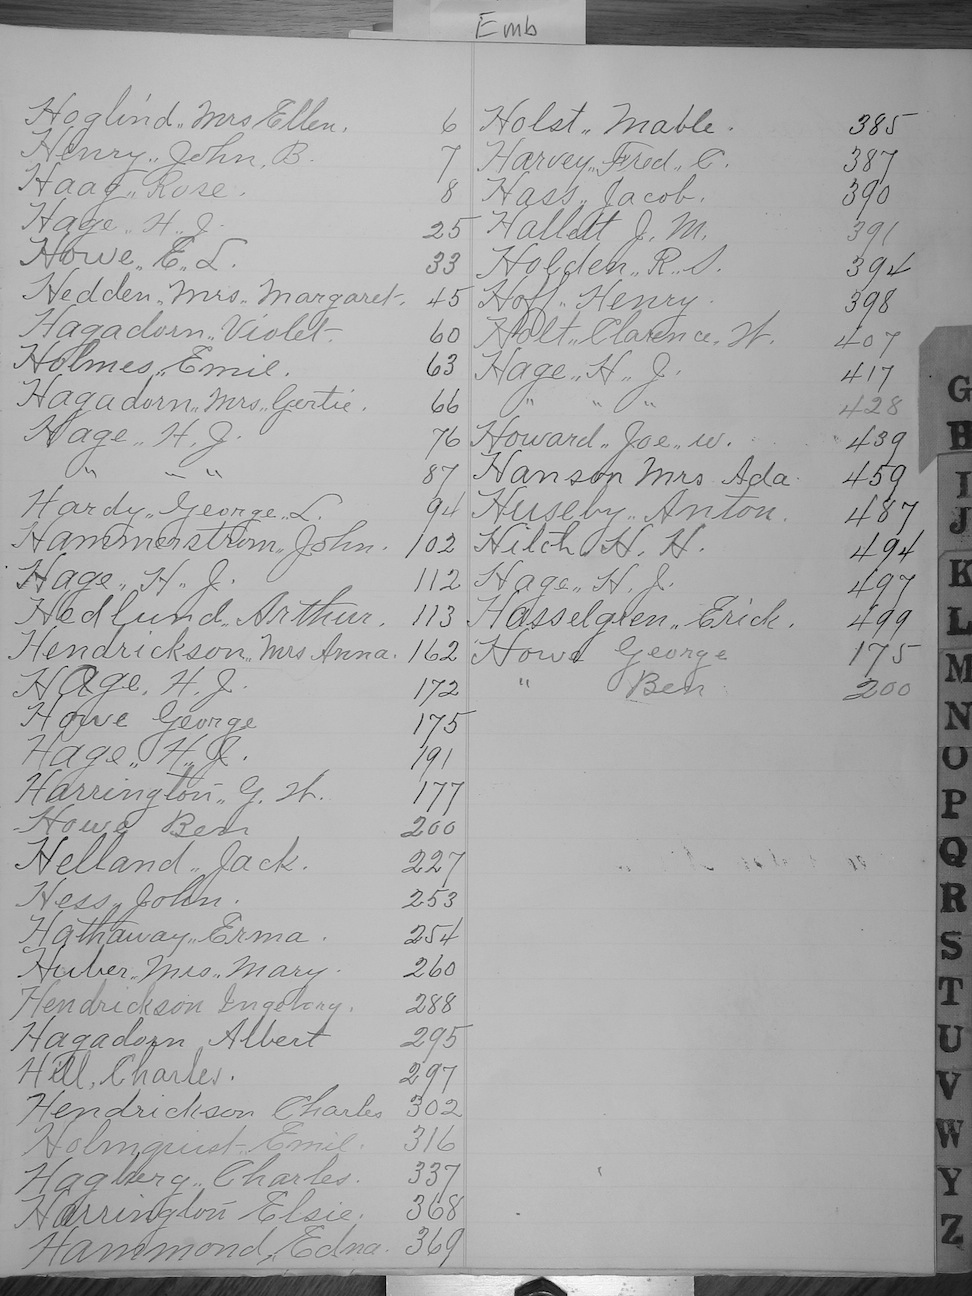 Emb
Hoglind,, Mrs Ellen. 6
Henry,, John, B. 7
Haag,, Rose. 8
Hage,, H.. J. 25
Howe,, E,, L. 33
Hedden,, Mrs,, Margaret. 45
Hagadorn,, Violet. 60
Holmes,, Emil. 63
Hagadorn,, Mrs,, Gertie. 66
Hage,, H. J. 76
" " " 87
Hardy,, George,, L. 94
Hammerstrom,, John. 102
Hage,, H.. J. 112
Hedlund,, Arthur. 113
Hendrickson,, Mrs Anna. 162
Hage, H. J. 172
Howe George 175
Hage,, H,, J. 191
Harrington,, G. W. 177
Howe Ben 200
Helland,, Jack. 227
Hess,, John. 253
Hathaway,, Erma. 254
Huber,, Mrs,, Mary. 260
Hendrickson Ingeborg. 288
Hagadorn Albert 295
Hill, Charles. 297
Hendrickson Charles 302
Holmquist,, Emil. 316
Hagberg,, Charles. 337
Harrington Elsie. 368
Hammond,, Edna. 369
Holst,, Mable. 385
Harvey,, Fred,, C. 387
Hass,, Jacob. 390
Hallett J. M. 391
Holden,, R.. S. 394
Hoff,, Henry. 398
Holt,, Clarence, W. 407
Hage,, H,, J. 417
" " " 428
Howard,, Joe,, W. 439
Hanson Mrs. Ada. 459
Huseby,, Anton. 487
Hilch, H. H. 494
Hage,, H. J. 497
Hasselgren,, Erick. 499
Howe George 175
" Ben 200
G
H
I
J
K
L
M
N
O
P
Q
R
S
T
U
V
W
Y
Z